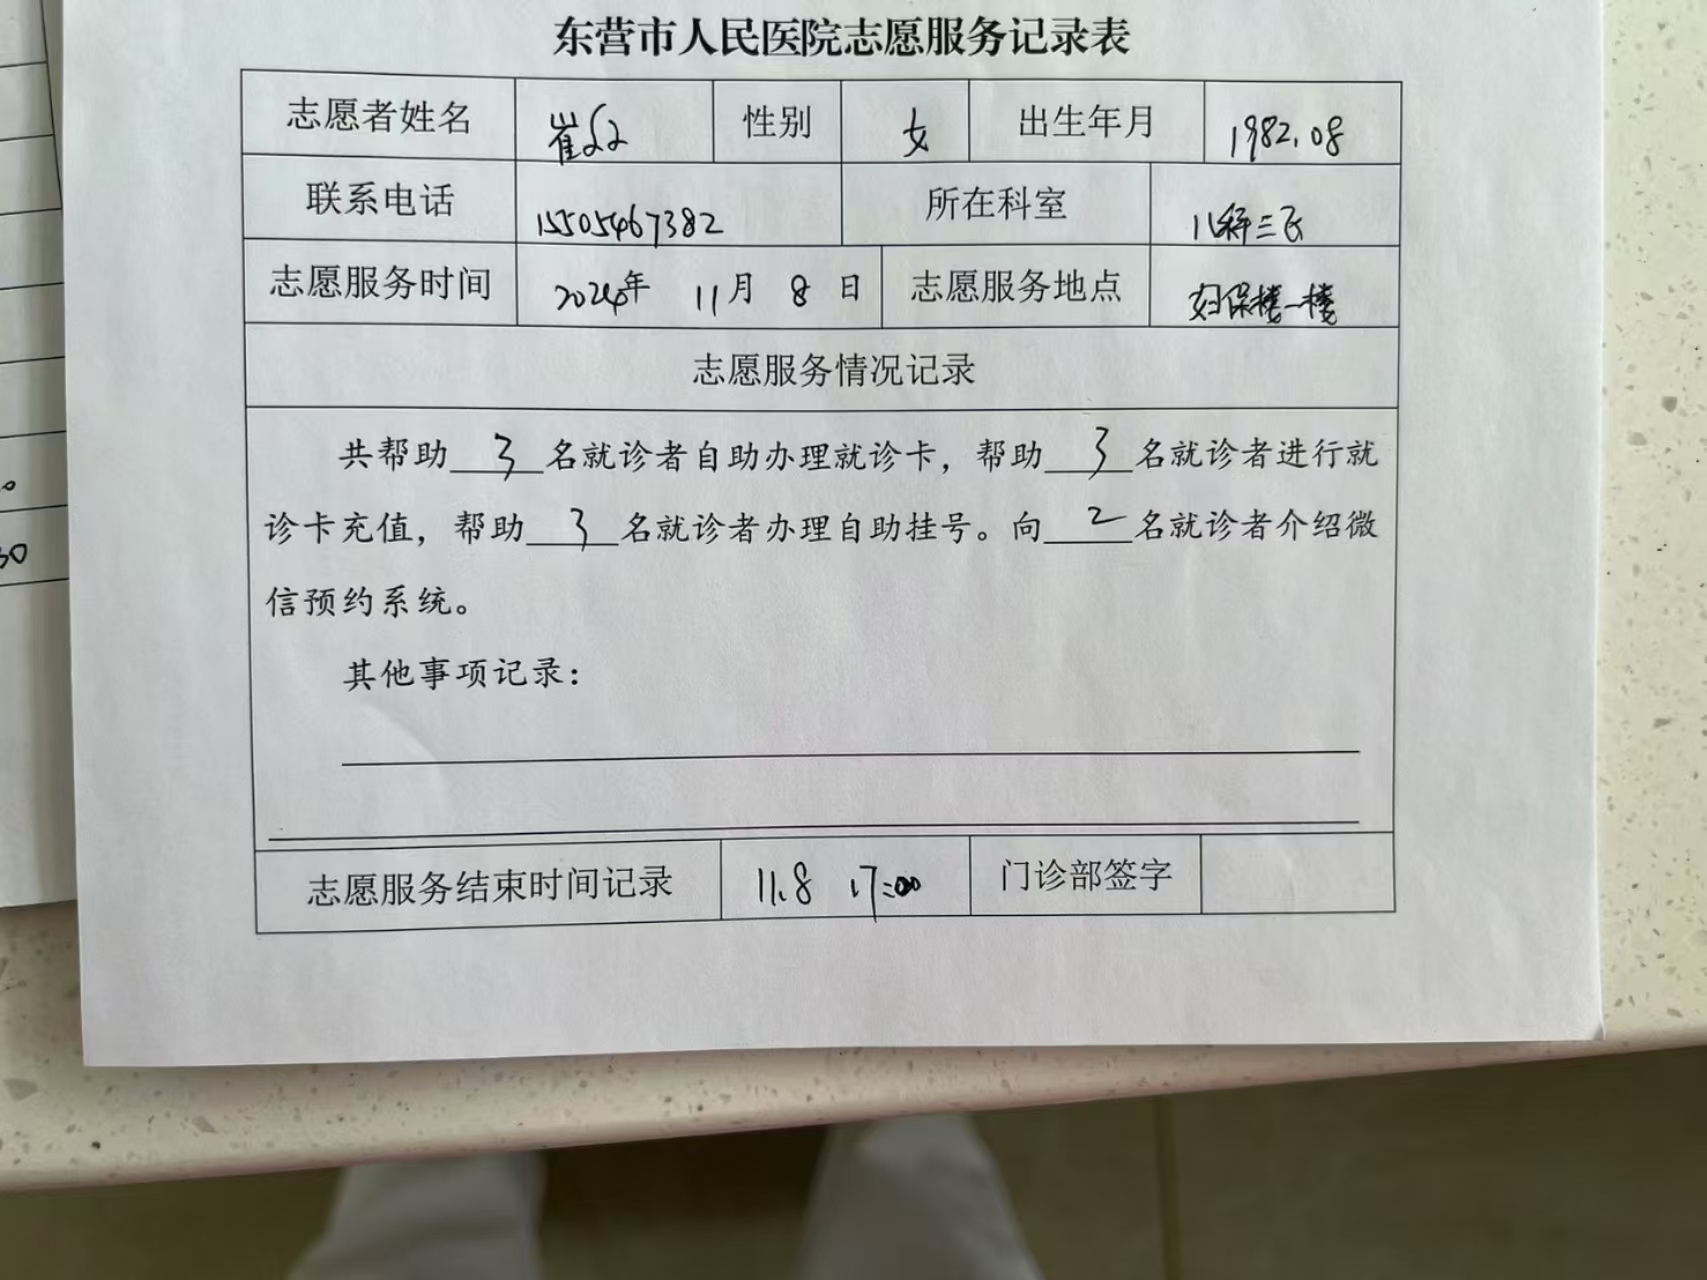 东营市人民医院志愿服务记录表
志愿者姓名 崔 性别 女 出生年月 1982.08
联系电话 15505467382 所在科室 儿科三区
志愿服务时间 2024年 11月 8日 志愿服务地点 妇保楼一楼
志愿服务情况记录
共帮助 3 名就诊者自助办理就诊卡，帮助 3 名就诊者进行就
诊卡充值，帮助 3 名就诊者办理自助挂号。向 2 名就诊者介绍微
信预约系统。
其他事项记录：
志愿服务结束时间记录 11.8 17:00 门诊部签字